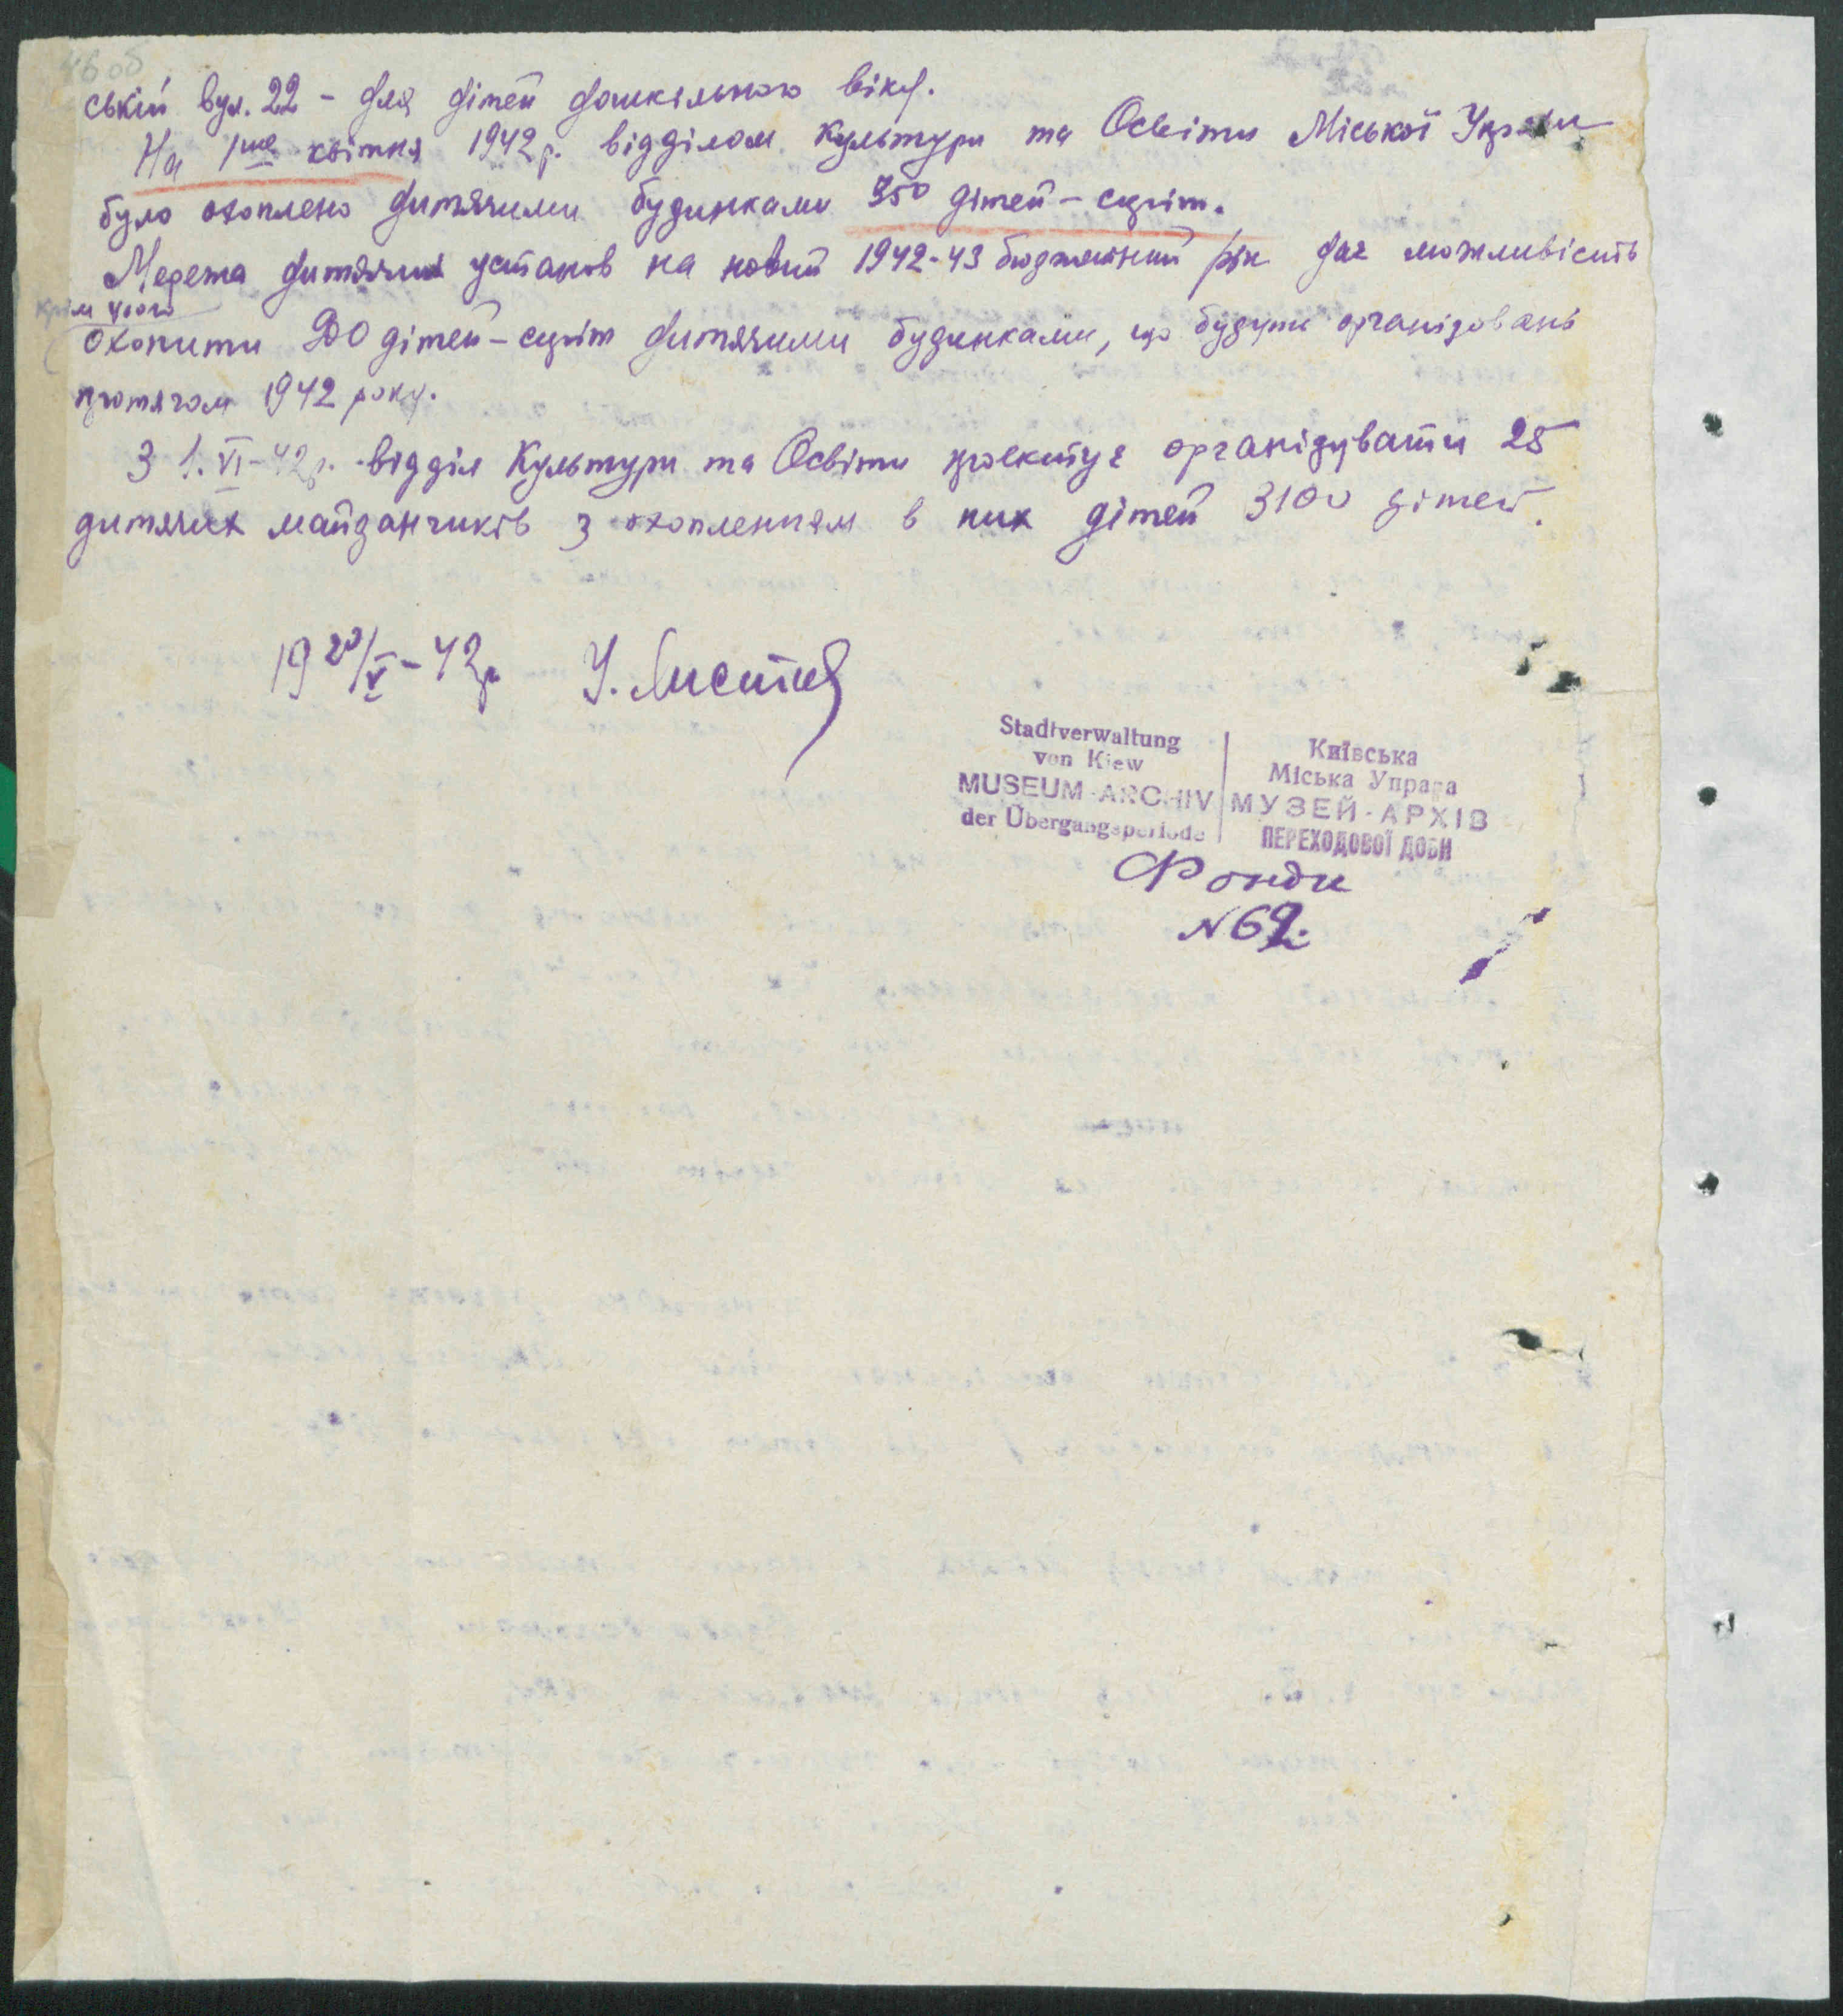 46 об
ській вул. 22 – для дітей дошкільного віку.
На 1ше квітня 1942 р. відділом Культури та Освіти Міської Управи
було охоплено дитячими будинками 350 дітей – сиріт.
Мережа дитячих установ на новий 1942-43 бюджетний рік дає можливість
крім того
охопити дітей – сиріт дитячими будинками, що будуть організовань
протягом 1942 року.
З 1. VI-42 р. відділ Культури та Освіти проектує організувати 25
дитячих майданчиків з охопленням в них дітей 3100 дітей.
19 20/V – 42 р. У.
Stadtverwaltung
von Kiew
MUSEUM-ARCHIV
der Übergangsperiode
Київська
Міська Управа
МУЗЕЙ-АРХІВ
ПЕРЕХОДОВОЇ ДОБИ
Фонди
N 69.